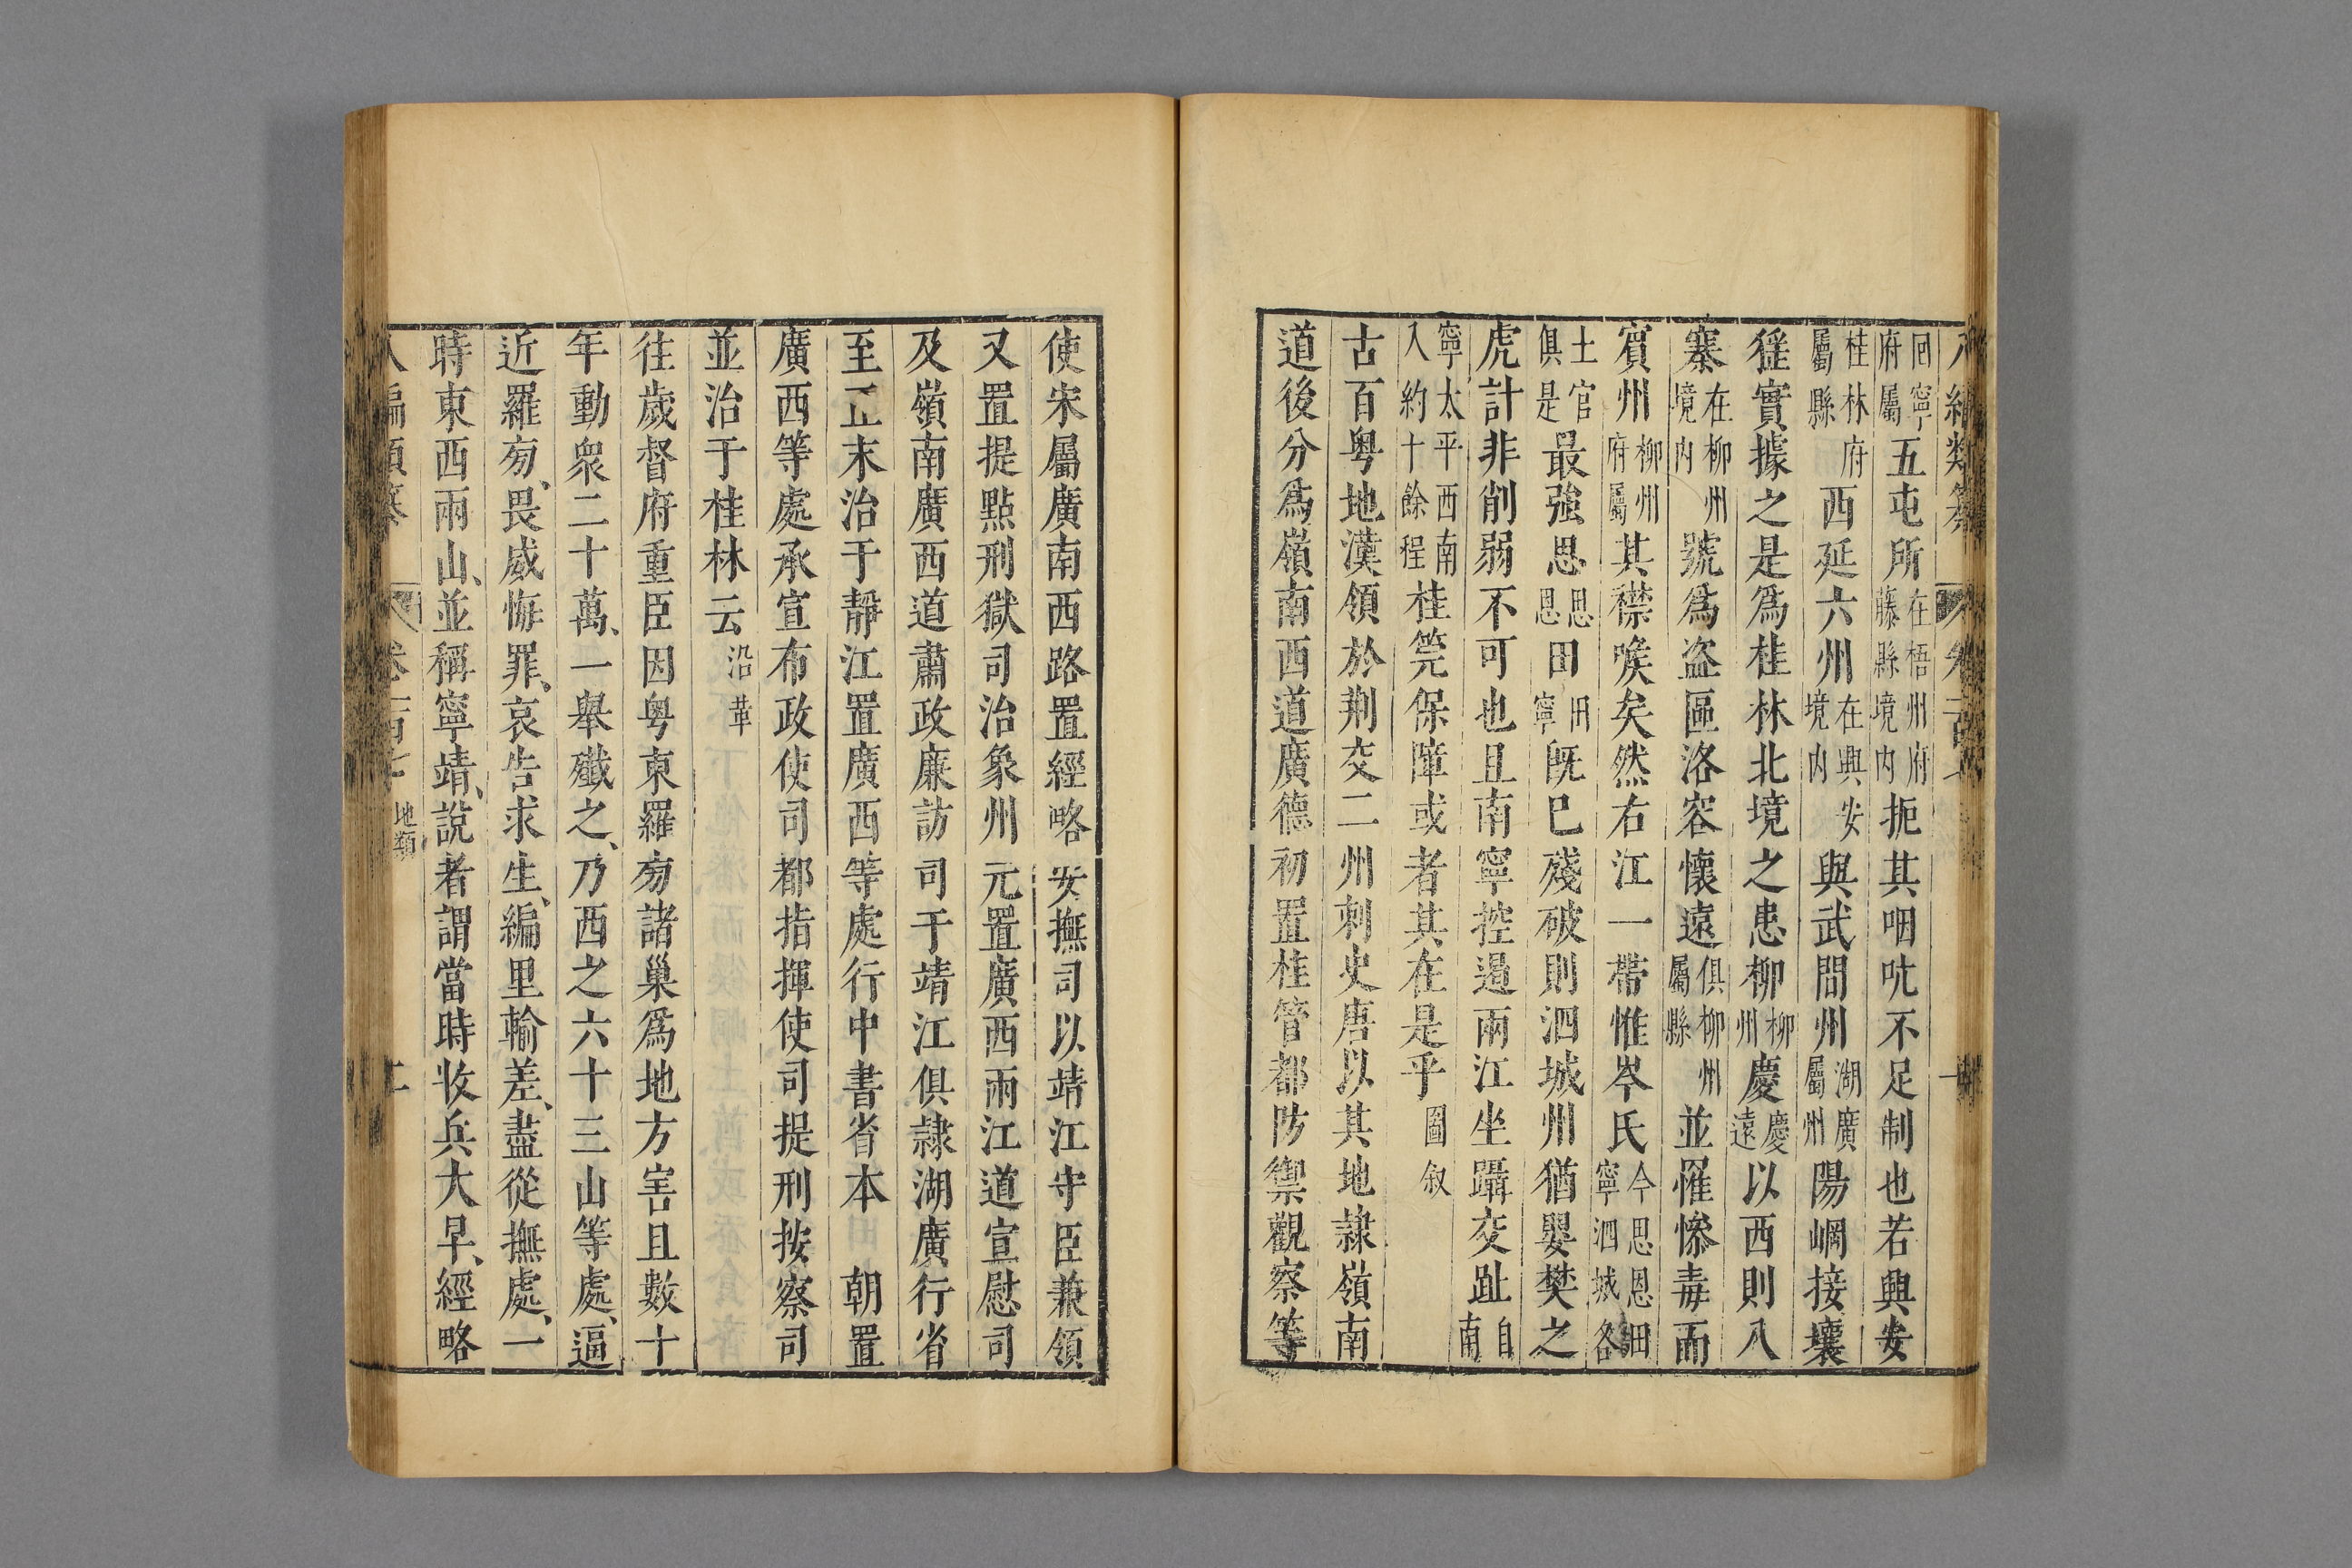 八編類纂 卷一百 一
囘寧府屬五屯所在梧州府藤縣境内扼其咽吭不足制也若興安
桂林府屬縣西延六州在興安境内與武問州湖廣屬州陽峒接壤
獞實據之是爲桂林北境之患柳柳州慶慶遠以西則八
寨在柳州境内號爲盜區洛容懷遠俱柳州屬縣並罹慘毒而
賓州柳州府屬其襟喉矣然右江一帶惟岑氏今思恩田寧泗城各
土官俱是最強思思恩田田寧既巳殘破則泗城州猶嬰樊之
虎計非削弱不可也且南寧控遏兩江坐躡交趾自南
寧太平西南入約十餘程桂筦保障或者其在是乎圖叙
古百粤地漢領於荆交二州刺史唐以其地隷嶺南
道後分爲嶺南西道廣德初置桂管都防禦觀察等
使宋屬廣南西路置經略安撫司以靖江守臣兼領
又置提點刑獄司治象州元置廣西兩江道宣慰司
及嶺南廣西道肅政廉訪司于靖江俱隷湖廣行省
至正末治于靜江置廣西等處行中書省本朝置
廣西等處承宣布政使司都指揮使司提刑按察司
並治于桂林云沿革
徃歲督府重臣因粤東羅旁諸巢爲地方害且數十
年動衆二十萬、一舉殲之、乃西之六十三山等處、逼
近羅旁、畏威悔罪、哀告求生、編里輸差、盡從撫處、一
時東西兩山、並稱寧靖、説者謂當時收兵大早、經略
八編類纂 卷一百 地類 二